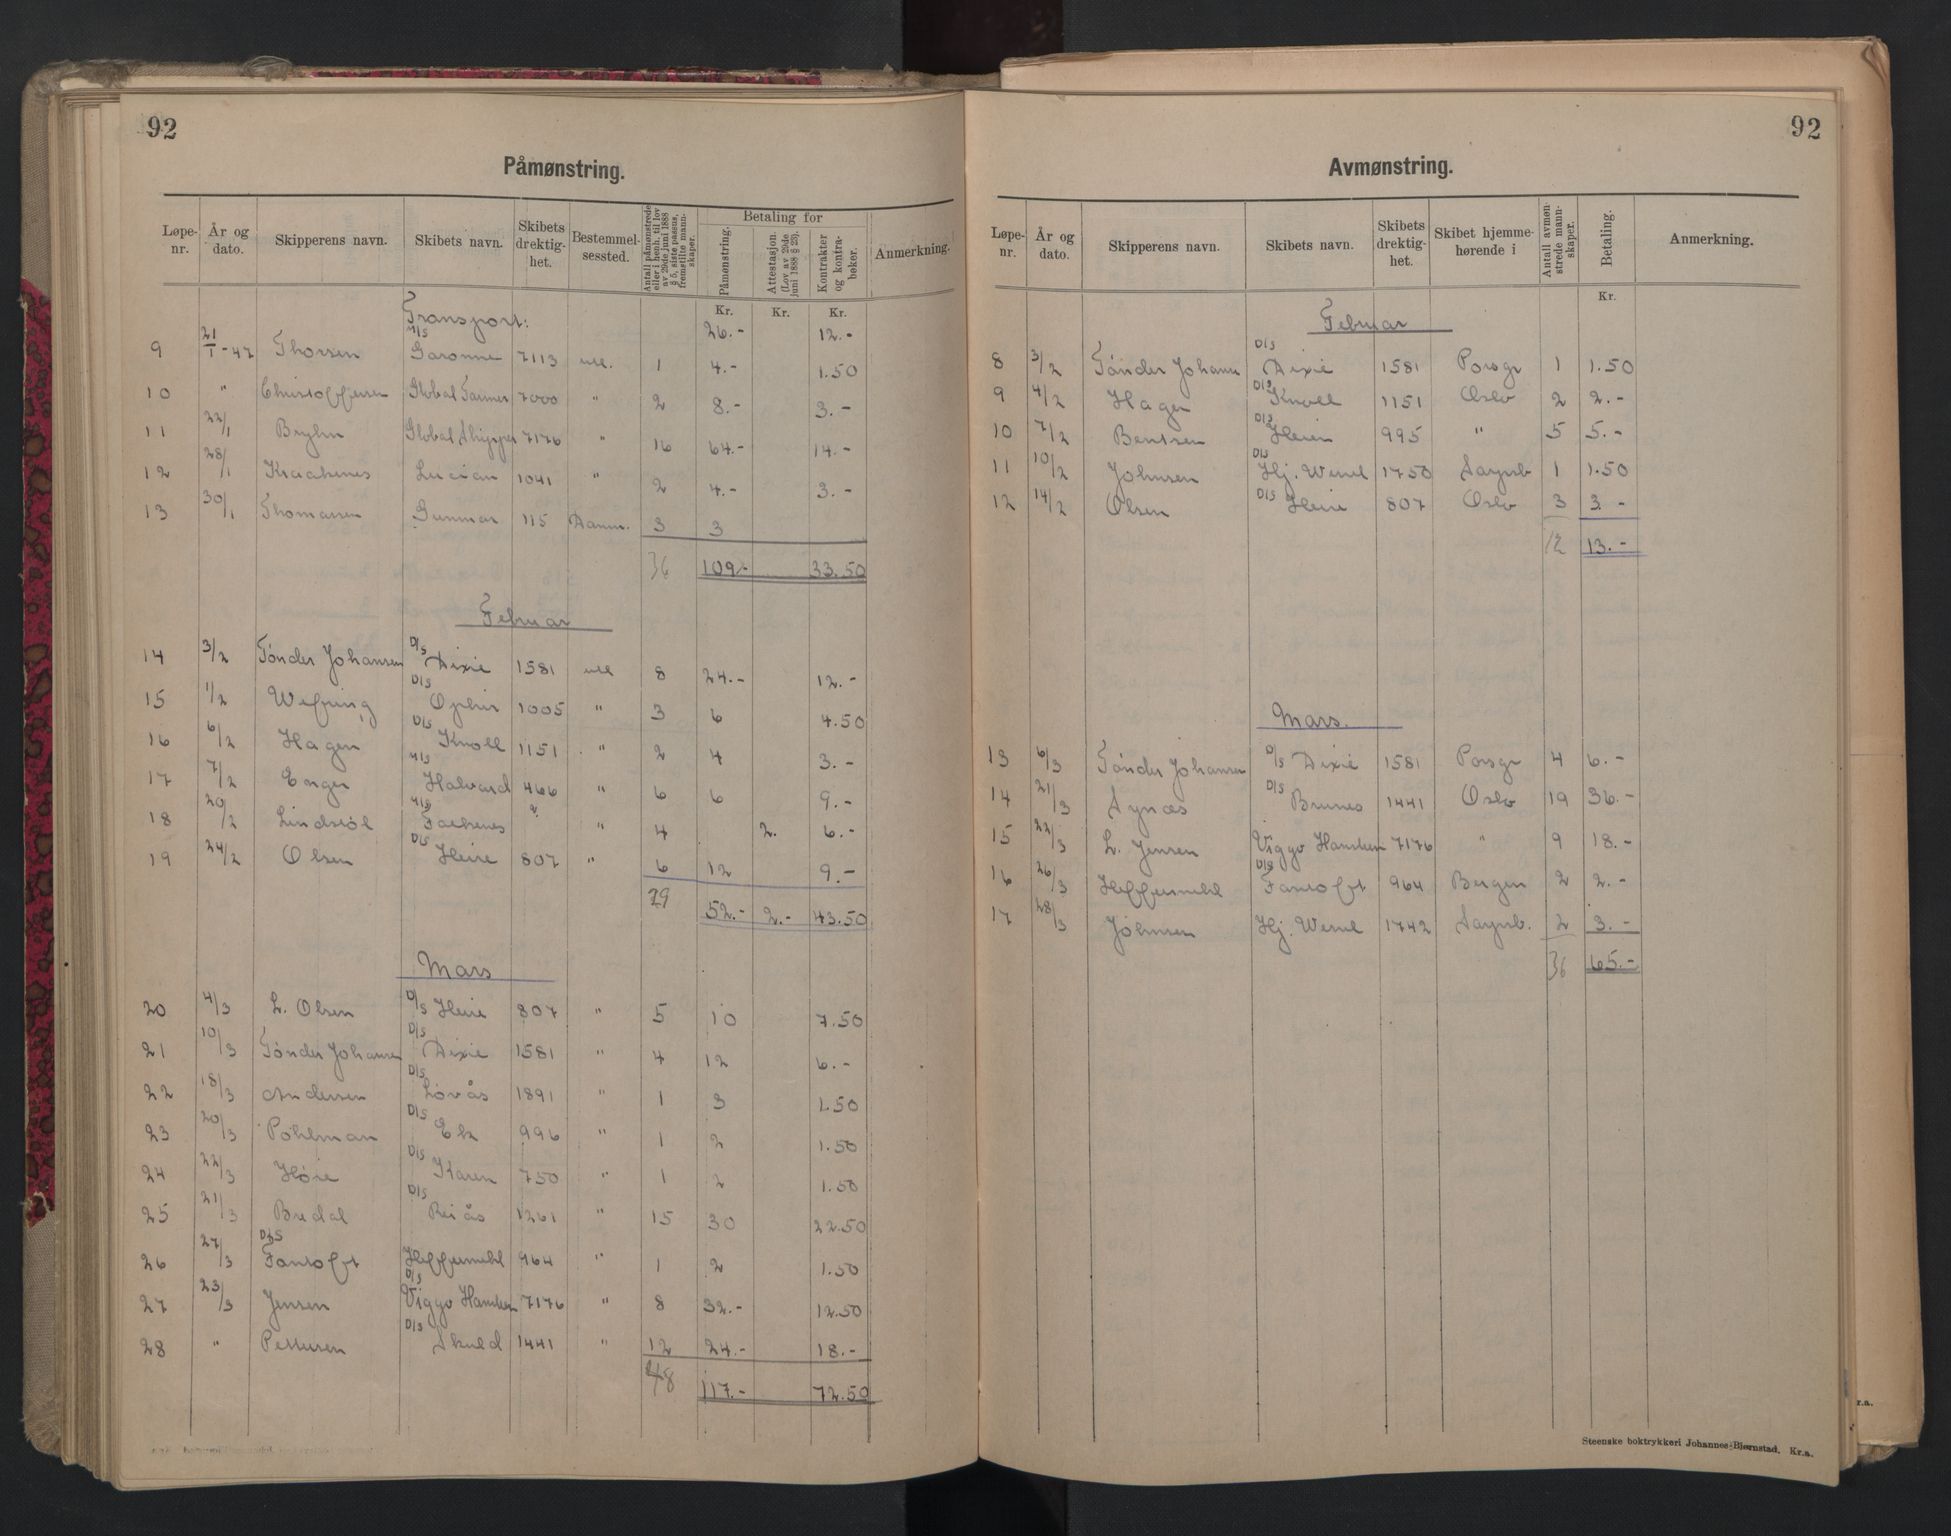 92
Påmønstring.
Løpe-nr. | År og dato. | Skipperens navn. | Skibets navn. | Skibets drektig-het. | Bestemmel-sessted. | Antall påmønstrede eller i henh. til lov av 29de juni 1888 § 5, siste passus, fremstilte mann-skaper. | Betaling for | Påmønstring. | Attestasjon. (Lov av 29de juni 1888 § 25). | Kontrakter og kontra-bøker. | Anmerkning.
Kr. Kr. Kr.
Transport: 26.- 12.-
9 21/1-47 Thorsen M/S Garonne 7113 utl. 1 4.- 1.50
10 " Christoffersen Global Farmer 7000 " 2 8.- 3.-
11 22/1 Bryhn Global Shipper 7176 " 16 64.- 14.-
12 28/1 Kraakenes Lucian 1041 " 2 4.- 3.-
13 30/1 Thomassen Gunnar 115 Danm. 3 3
36 109.- 33.50
Februar
14 3/2 Tønder Johansen D/S Dixie 1581 utl 8 24.- 12.-
15 1/2 Wefring D/S Ophir 1005 " 3 6 4.50
16 6/2 Hagen D/S Knoll 1151 " 2 4 3.-
17 7/2 Enger M/S Halvard 466 " 6 6 9.-
18 20/2 Lindstøl M/S " 4 2. 6.-
19 24/2 Olsen D/S Heire 807 " 6 12 9.-
29 52.- 2.- 43.50
Mars
20 4/3 L. Olsen D/S Heire 807 " 5 10 7.50
21 10/3 Tønder Johansen D/S Dixie 1581 " 4 12 6.-
22 18/3 Andersen D/S Lovås 1891 " 1 3 1.50
23 20/3 Pohlman D/S Ek 996 " 1 2 1.50
24 22/3 Høie D/S Karen 750 " 1 2 1.50
25 21/3 Bredal D/S Reiås 1261 " 15 30 22.50
26 27/3 D/S Fantoft Heffermehl 964 " 1 2 1.50
27 23/3 Jensen D/S Viggo Hansteen 7176 " 8 32.- 12.50
28 " Pettersen D/S Skuld 1441 " 12 24.- 18.-
48 117.- 72.50
92
Avmønstring.
Løpe-nr. | År og dato. | Skipperens navn. | Skibets navn. | Skibets drektig-het. | Skibet hjemme-hørende i | Antall avmøn-strede mann-skaper. | Betaling. | Anmerkning.
Kr.
Februar
8 3/2 Tønder Johansn D/S Dixie 1581 Porsgr 1 1.50
9 4/2 Hagen D/S Knoll 1151 Oslo 2 2.-
10 7/2 Bentsen D/S Heien 995 " 5 5.-
11 10/2 Johnsen D/S Hj. Wessel 1750 Sarpsb 1 1.50
12 14/2 Olsen D/S Heire 807 Oslo 3 3.-
12 13.-
Mars.
13 6/3 Tønder Johansen D/S Dixie 1581 Porsgr 4 6.-
14 21/3 Synæs D/S Brunes 1441 Oslo 19 36.-
15 22/3 L. Jensen Viggo Hansteen 7176 " 9 18.-
16 26/3 Heffermehl D/S Fantoft 964 Bergen 2 2.-
17 28/3 Johnsen Hj. Wessel 1742 Sarpsb. 2 3.-
36 65.-
Steenske boktrykkeri Johannes Bjørnstad. Kr.a.
r.a.